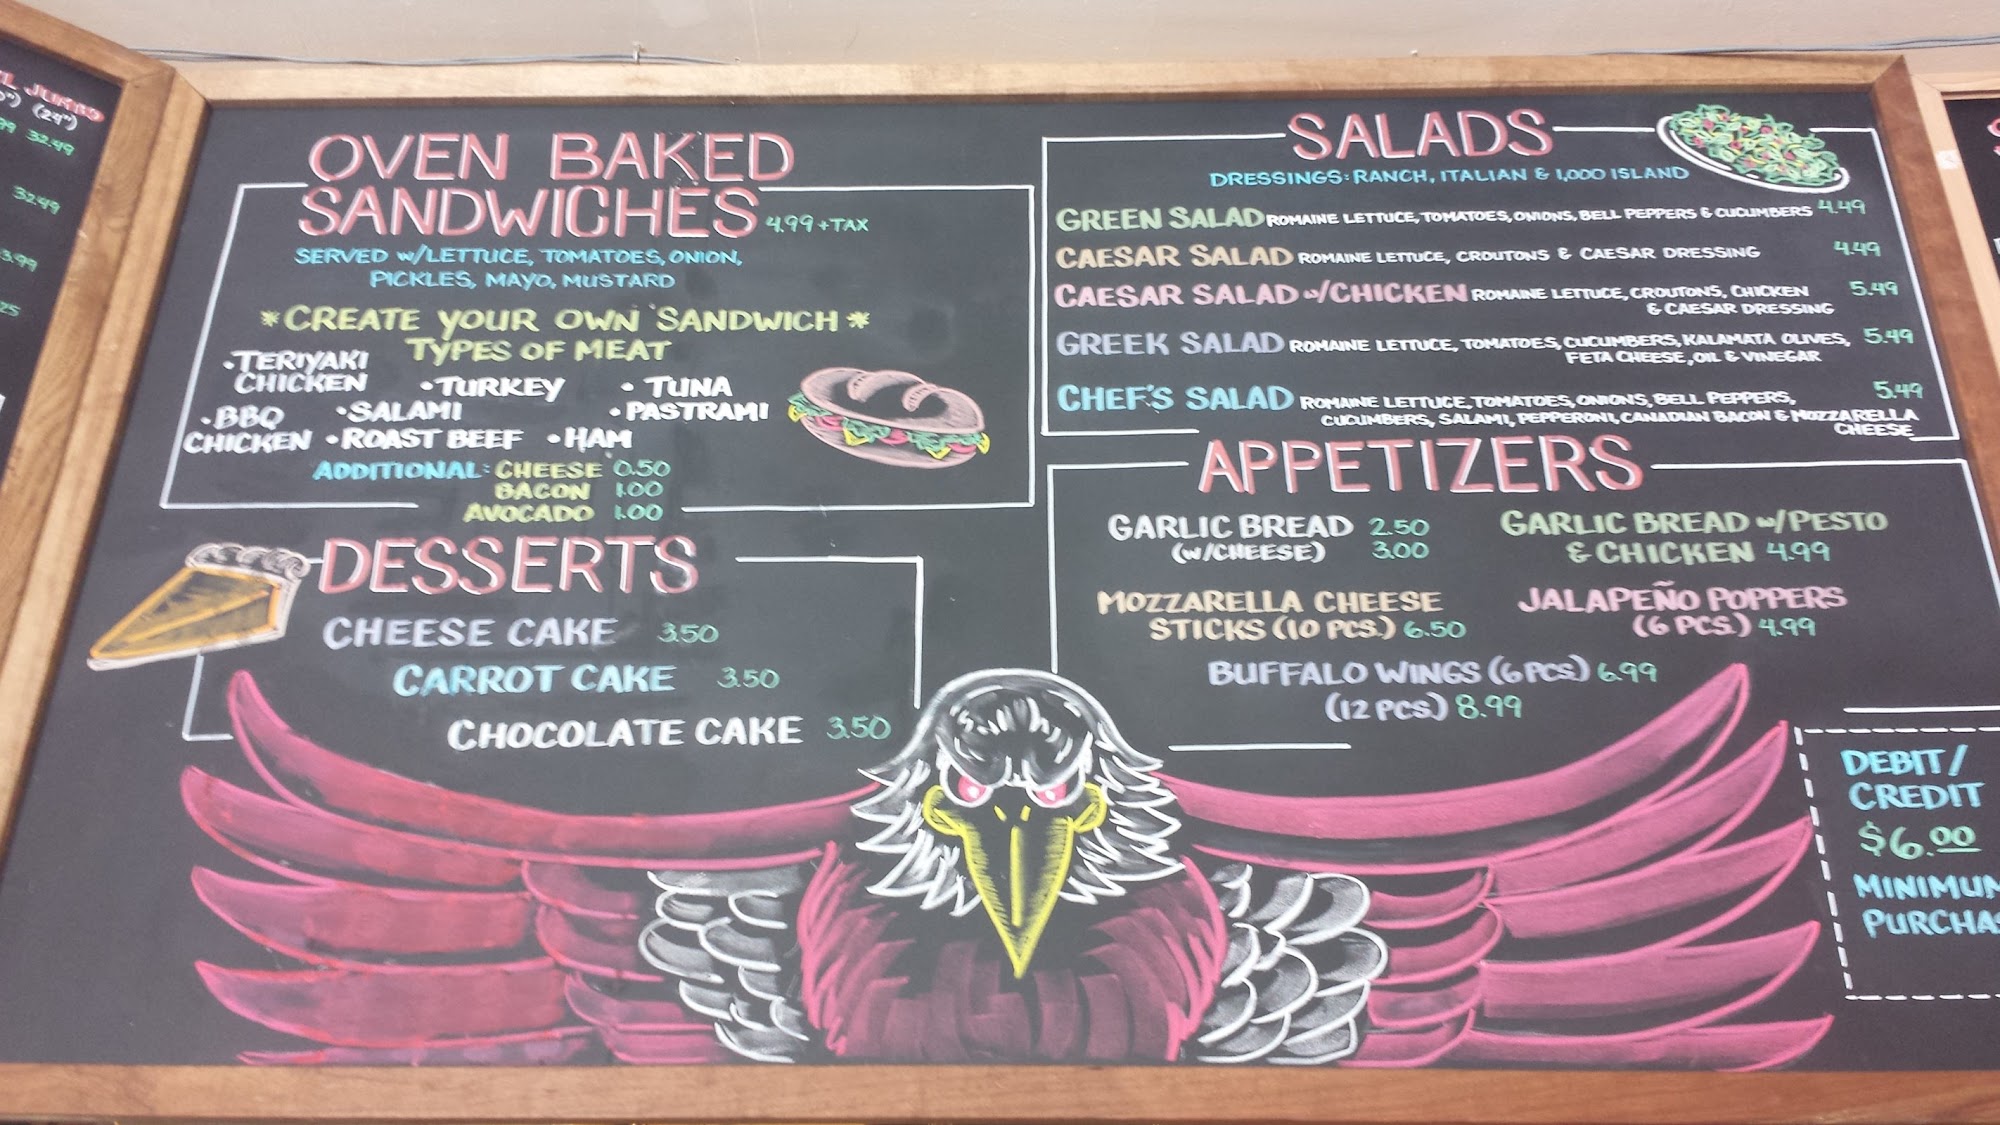 JUMBO
(24")
32.49
32.49
OVEN BAKED
SANDWICHES 4.99 + TAX
SERVED w/LETTUCE, TOMATOES, ONION,
PICKLES, MAYO, MUSTARD
*CREATE YOUR OWN SANDWICH*
TYPES OF MEAT
•TERIYAKI
CHICKEN
•TURKEY
• TUNA
•BBQ
CHICKEN
•SALAMI
•PASTRAMI
•ROAST BEEF
•HAM
ADDITIONAL: CHEESE 0.50
BACON 1.00
AVOCADO 1.00
DESSERTS
CHEESE CAKE 3.50
CARROT CAKE 3.50
CHOCOLATE CAKE 3.50
SALADS
DRESSINGS: RANCH, ITALIAN & 1,000 ISLAND
GREEN SALAD ROMAINE LETTUCE, TOMATOES, ONIONS, BELL PEPPERS & CUCUMBERS 4.49
CAESAR SALAD ROMAINE LETTUCE, CROUTONS & CAESAR DRESSING 4.49
CAESAR SALAD w/CHICKEN ROMAINE LETTUCE, CROUTONS, CHICKEN 5.49
& CAESAR DRESSING
GREEK SALAD ROMAINE LETTUCE, TOMATOES, CUCUMBERS, KALAMATA OLIVES, 5.49
FETA CHEESE, OIL & VINEGAR
CHEF'S SALAD ROMAINE LETTUCE, TOMATOES, ONIONS, BELL PEPPERS, 5.49
CUCUMBERS, SALAMI, PEPPERONI, CANADIAN BACON & MOZZARELLA
CHEESE
APPETIZERS
GARLIC BREAD 2.50
(w/CHEESE) 3.00
GARLIC BREAD w/PESTO
& CHICKEN 4.99
MOZZARELLA CHEESE
STICKS (10 PCS.) 6.50
JALAPEÑO POPPERS
(6 PCS.) 4.99
BUFFALO WINGS (6 PCS.) 6.99
(12 PCS.) 8.99
DEBIT/
CREDIT
$6.00
MINIMUM
PURCHAS